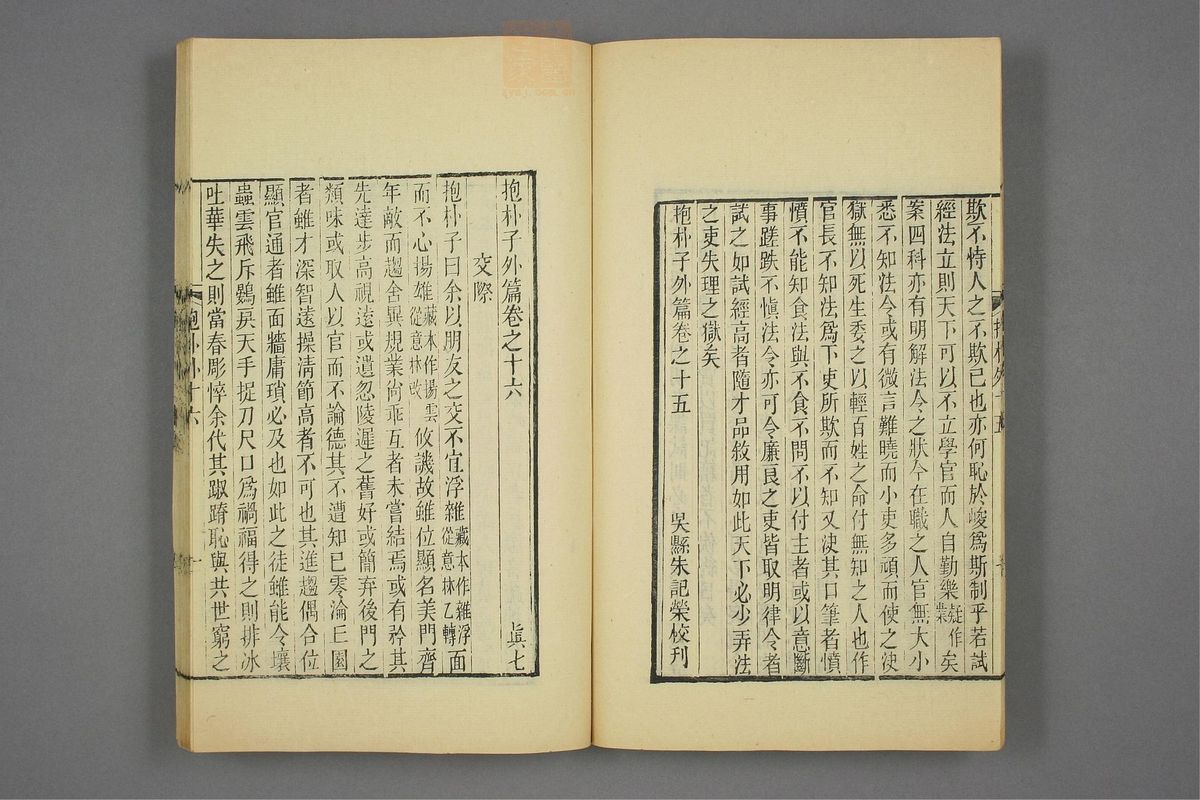 欺不恃人之不欺已也亦何恥於峻爲斯制乎若試
經法立則天下可以不立學官而人自勤樂疑作業矣
案四科亦有明解法令之狀今在職之人官無大小
悉不知法令或有微言難曉而小吏多頑而使之決
獄無以死生委之以輕百姓之命付無知之人也作
官長不知法爲下吏所欺而不知又決其口筆者憤
憤不能知食法與不食不問不以付主者或以意斷
事蹉跌不愼法令亦可令廉良之吏皆取明律令者
試之如試經高者隨才品敘用如此天下必少弄法
之吏失理之獄矣
抱朴子外篇卷之十五
吳縣朱記榮校刊
抱朴子外篇卷之十六
眞七
交際
抱朴子曰余以朋友之交不宜浮雜藏本作雜浮從意林乙轉面
而不心揚雄藏本作揚雲從意林改攸譏故雖位顯名美門齊
年敵而趨舍異規業尙乖互者未嘗結焉或有矜其
先達步高視遠或遺忽陵遲之舊好或簡弃後門之
類味或取人以官而不論德其不遭知已零淪丘園
者雖才深智遠操淸節高者不可也其進趨偶合位
顯官通者雖面牆庸瑣必及也如此之徒雖能令壤
蟲雲飛斥鷃戾天手捉刀尺口爲禍福得之則排冰
吐華失之則當春彫悴余代其踧踖恥與共世窮之
抱朴外十六